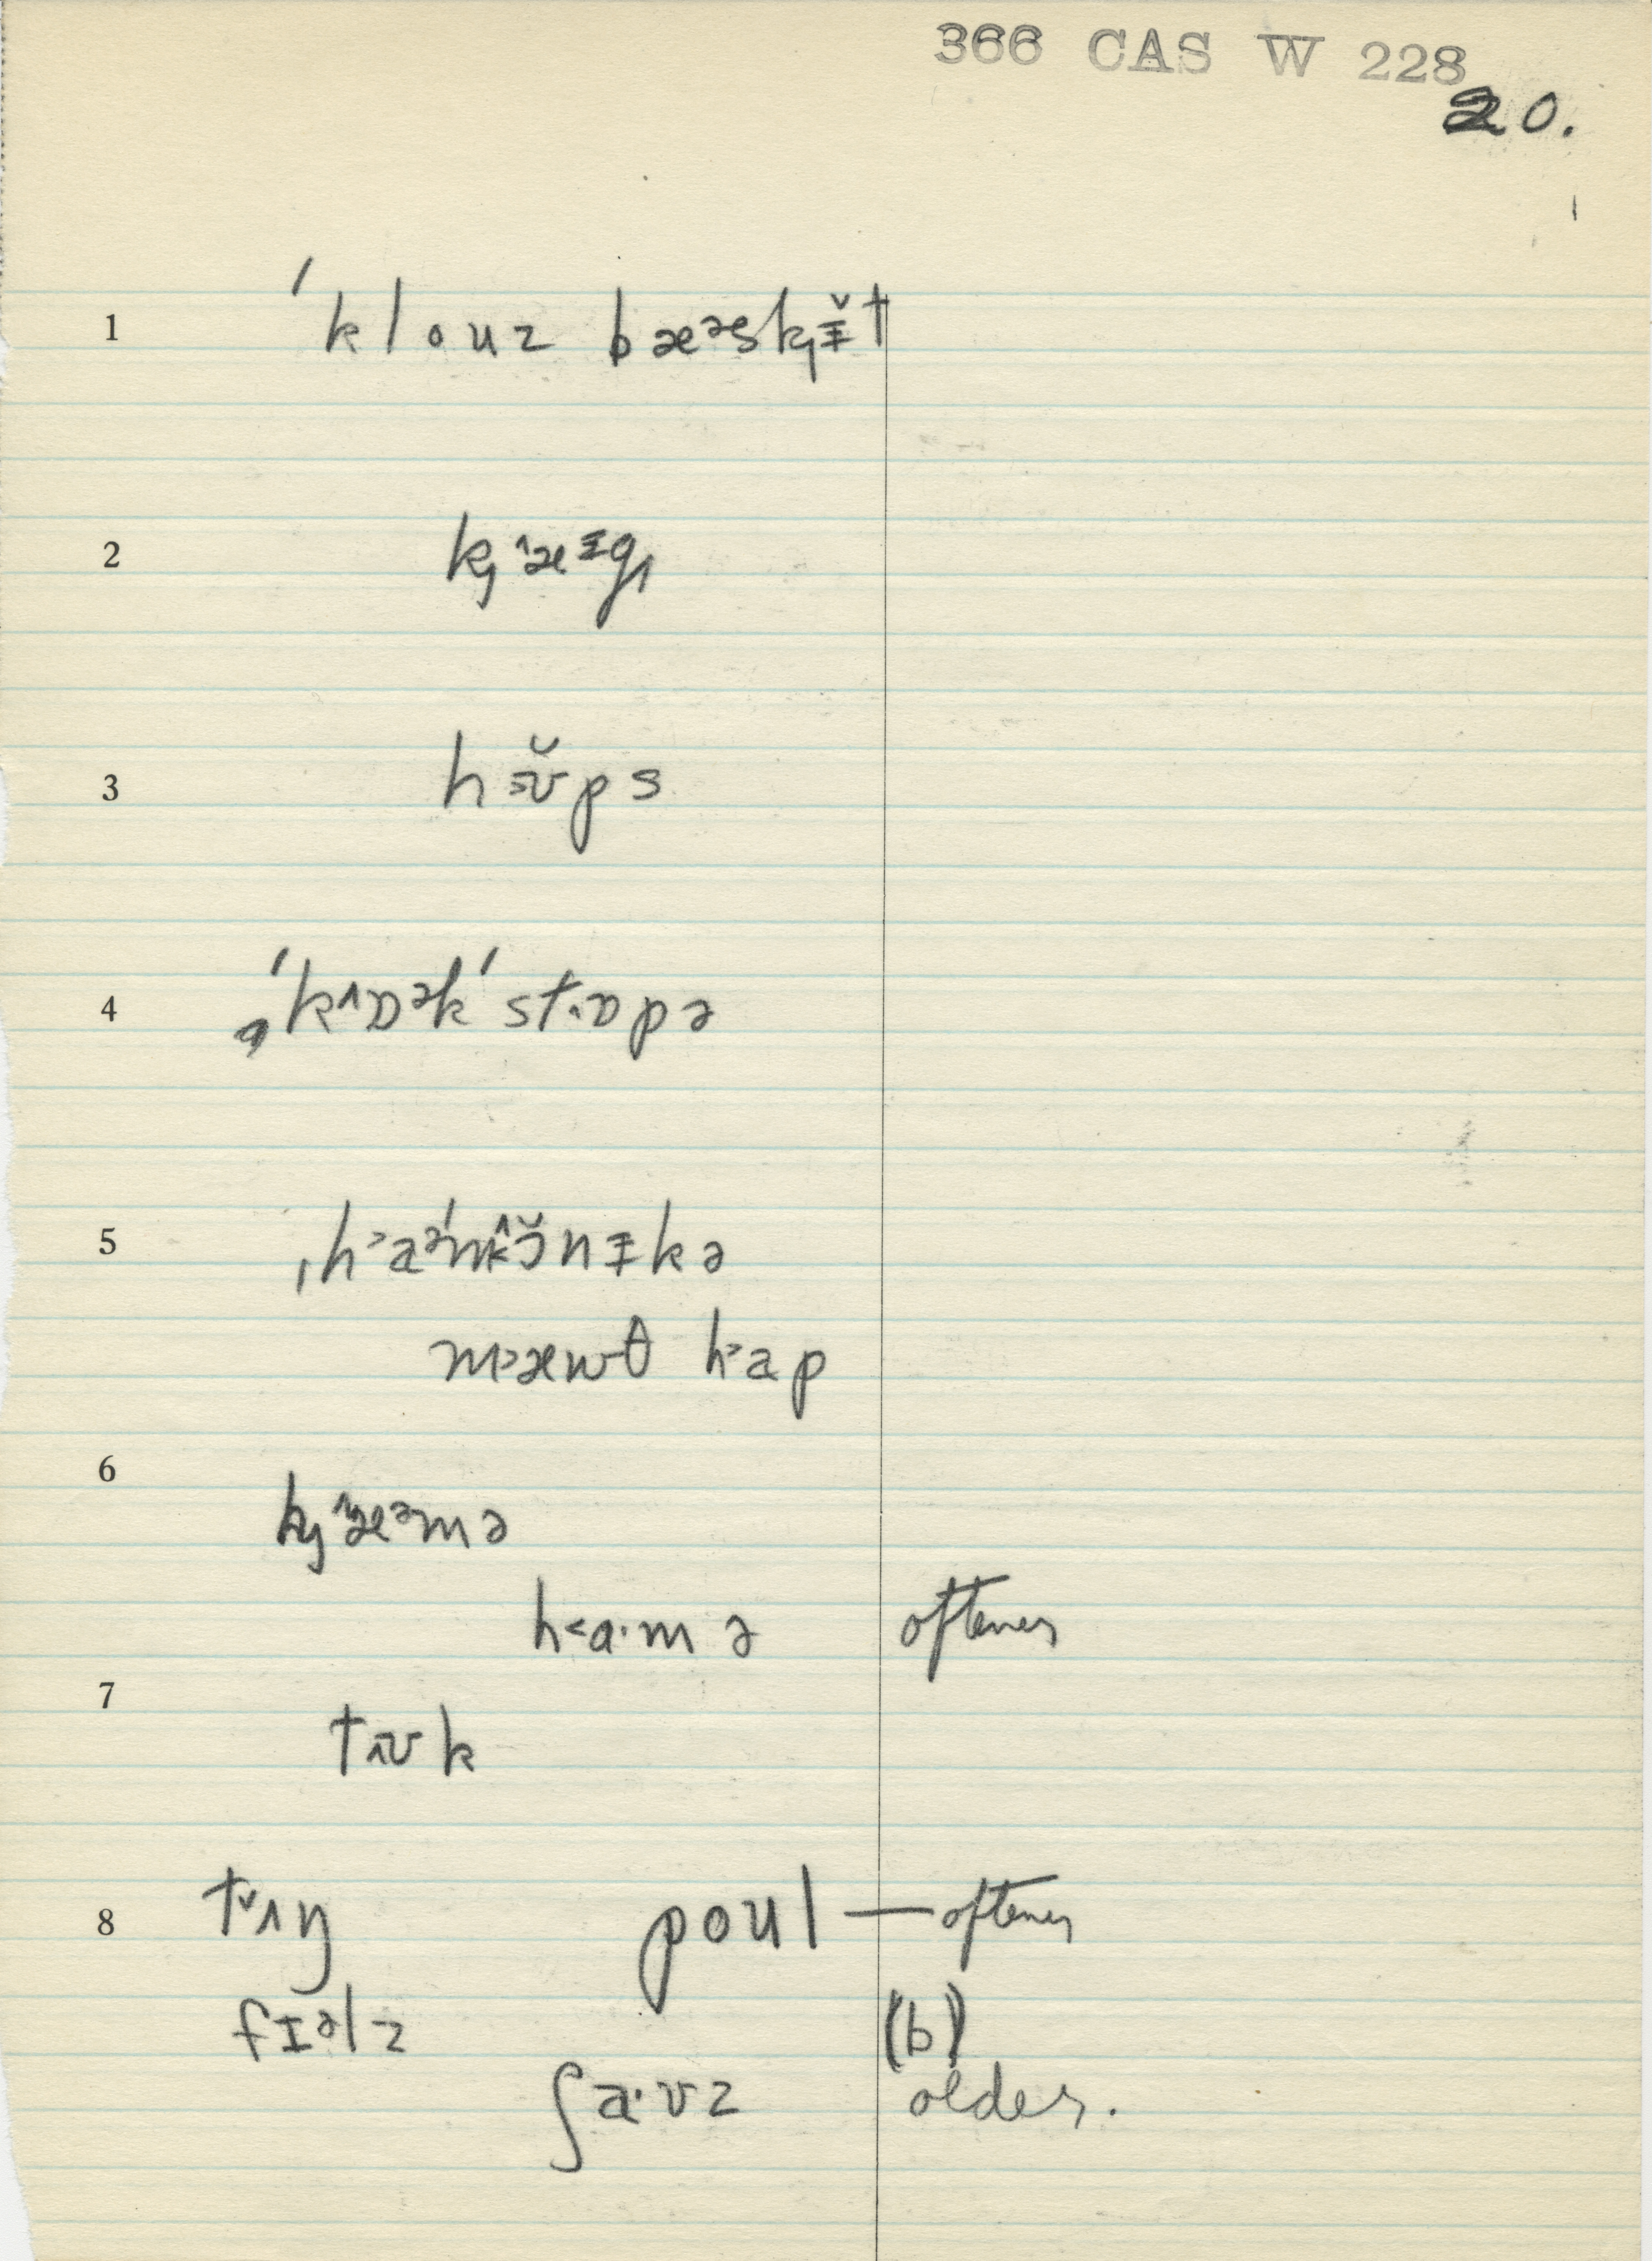 366 CAS W 228
20.
1 ˈklouz bæᵊsk̟ᵻ̆t
2 k̟æᵻg
3 hʊ̆ps
4 ˈkɒᵊkˈstɒpə
5 ˌhaᵊˈmɔ̆nᵻkə
mæwθ hap
6 k̟æᵊmə
ha·mə oftener
7 tʊk
8 tʌŋ poul — oftener
fɪəlz (b)
ʃa·vz older.